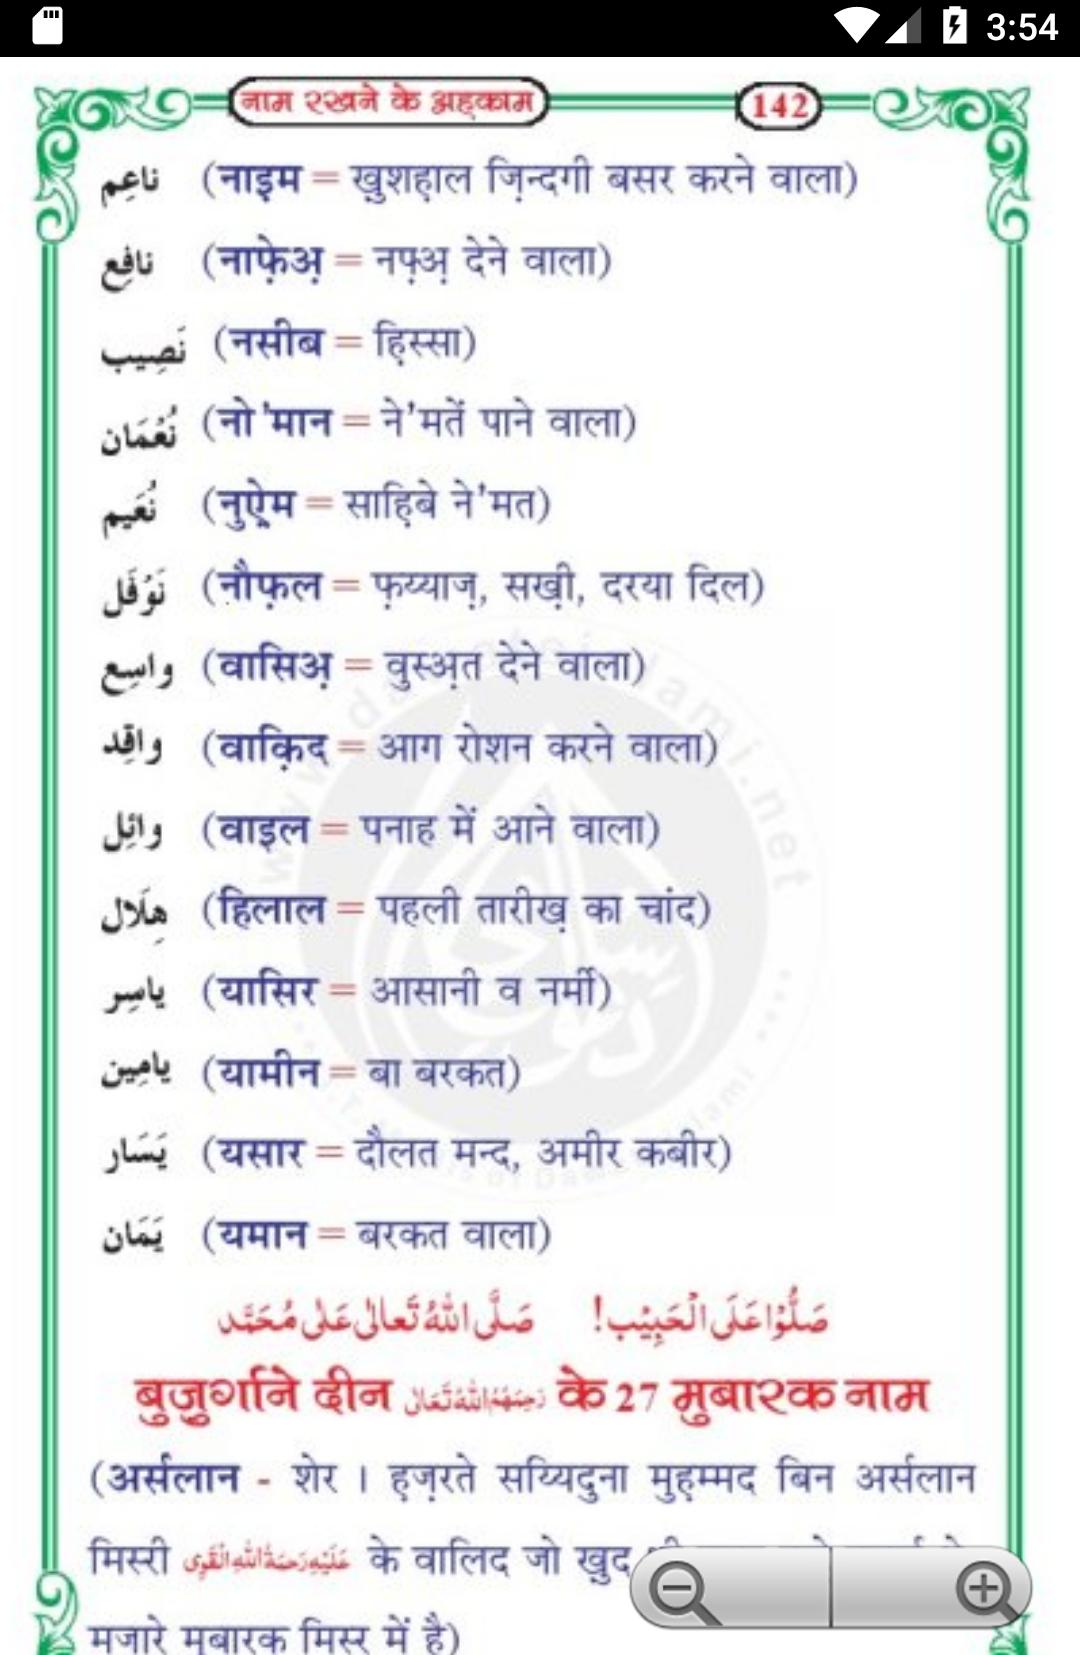 3:54
नाम रखने के अह़काम 142
ناعِم (नाइम = ख़ुशह़ाल ज़िन्दगी बसर करने वाला)
نافِع (नाफ़ेअ़ = नफ़्अ़ देने वाला)
نَصِيب (नसीब = ह़िस्सा)
نُعْمَان (नो'मान = ने'मतें पाने वाला)
نُعَيم (नुऐ़म = साह़िबे ने'मत)
نَوْفَل (नौफ़ल = फ़य्याज़, सख़ी, दरया दिल)
واسِع (वासिअ़ = वुस्अ़त देने वाला)
واقِد (वाक़िद = आग रोशन करने वाला)
وائِل (वाइल = पनाह में आने वाला)
هِلَال (हिलाल = पहली तारीख़ का चांद)
ياسِر (यासिर = आसानी व नर्मी)
يامِين (यामीन = बा बरकत)
يَسَار (यसार = दौलत मन्द, अमीर कबीर)
يَمَان (यमान = बरकत वाला)
صَلُّوْا عَلَى الْحَبِيْب! صَلَّى اللهُ تَعالٰى عَلٰى مُحَمَّد
बुज़ुर्गाने दीन رَحِمَهُمُ اللهُ تَعَالٰى के 27 मुबारक नाम
(अर्सलान - शेर । ह़ज़रते सय्यिदुना मुह़म्मद बिन अर्सलान
मिस्री عَلَيْهِ رَحمَةُ اللهِ الْقَوِى के वालिद जो ख़ुद
मज़ारे मुबारक मिस्र में है)
www.dawateislami.net